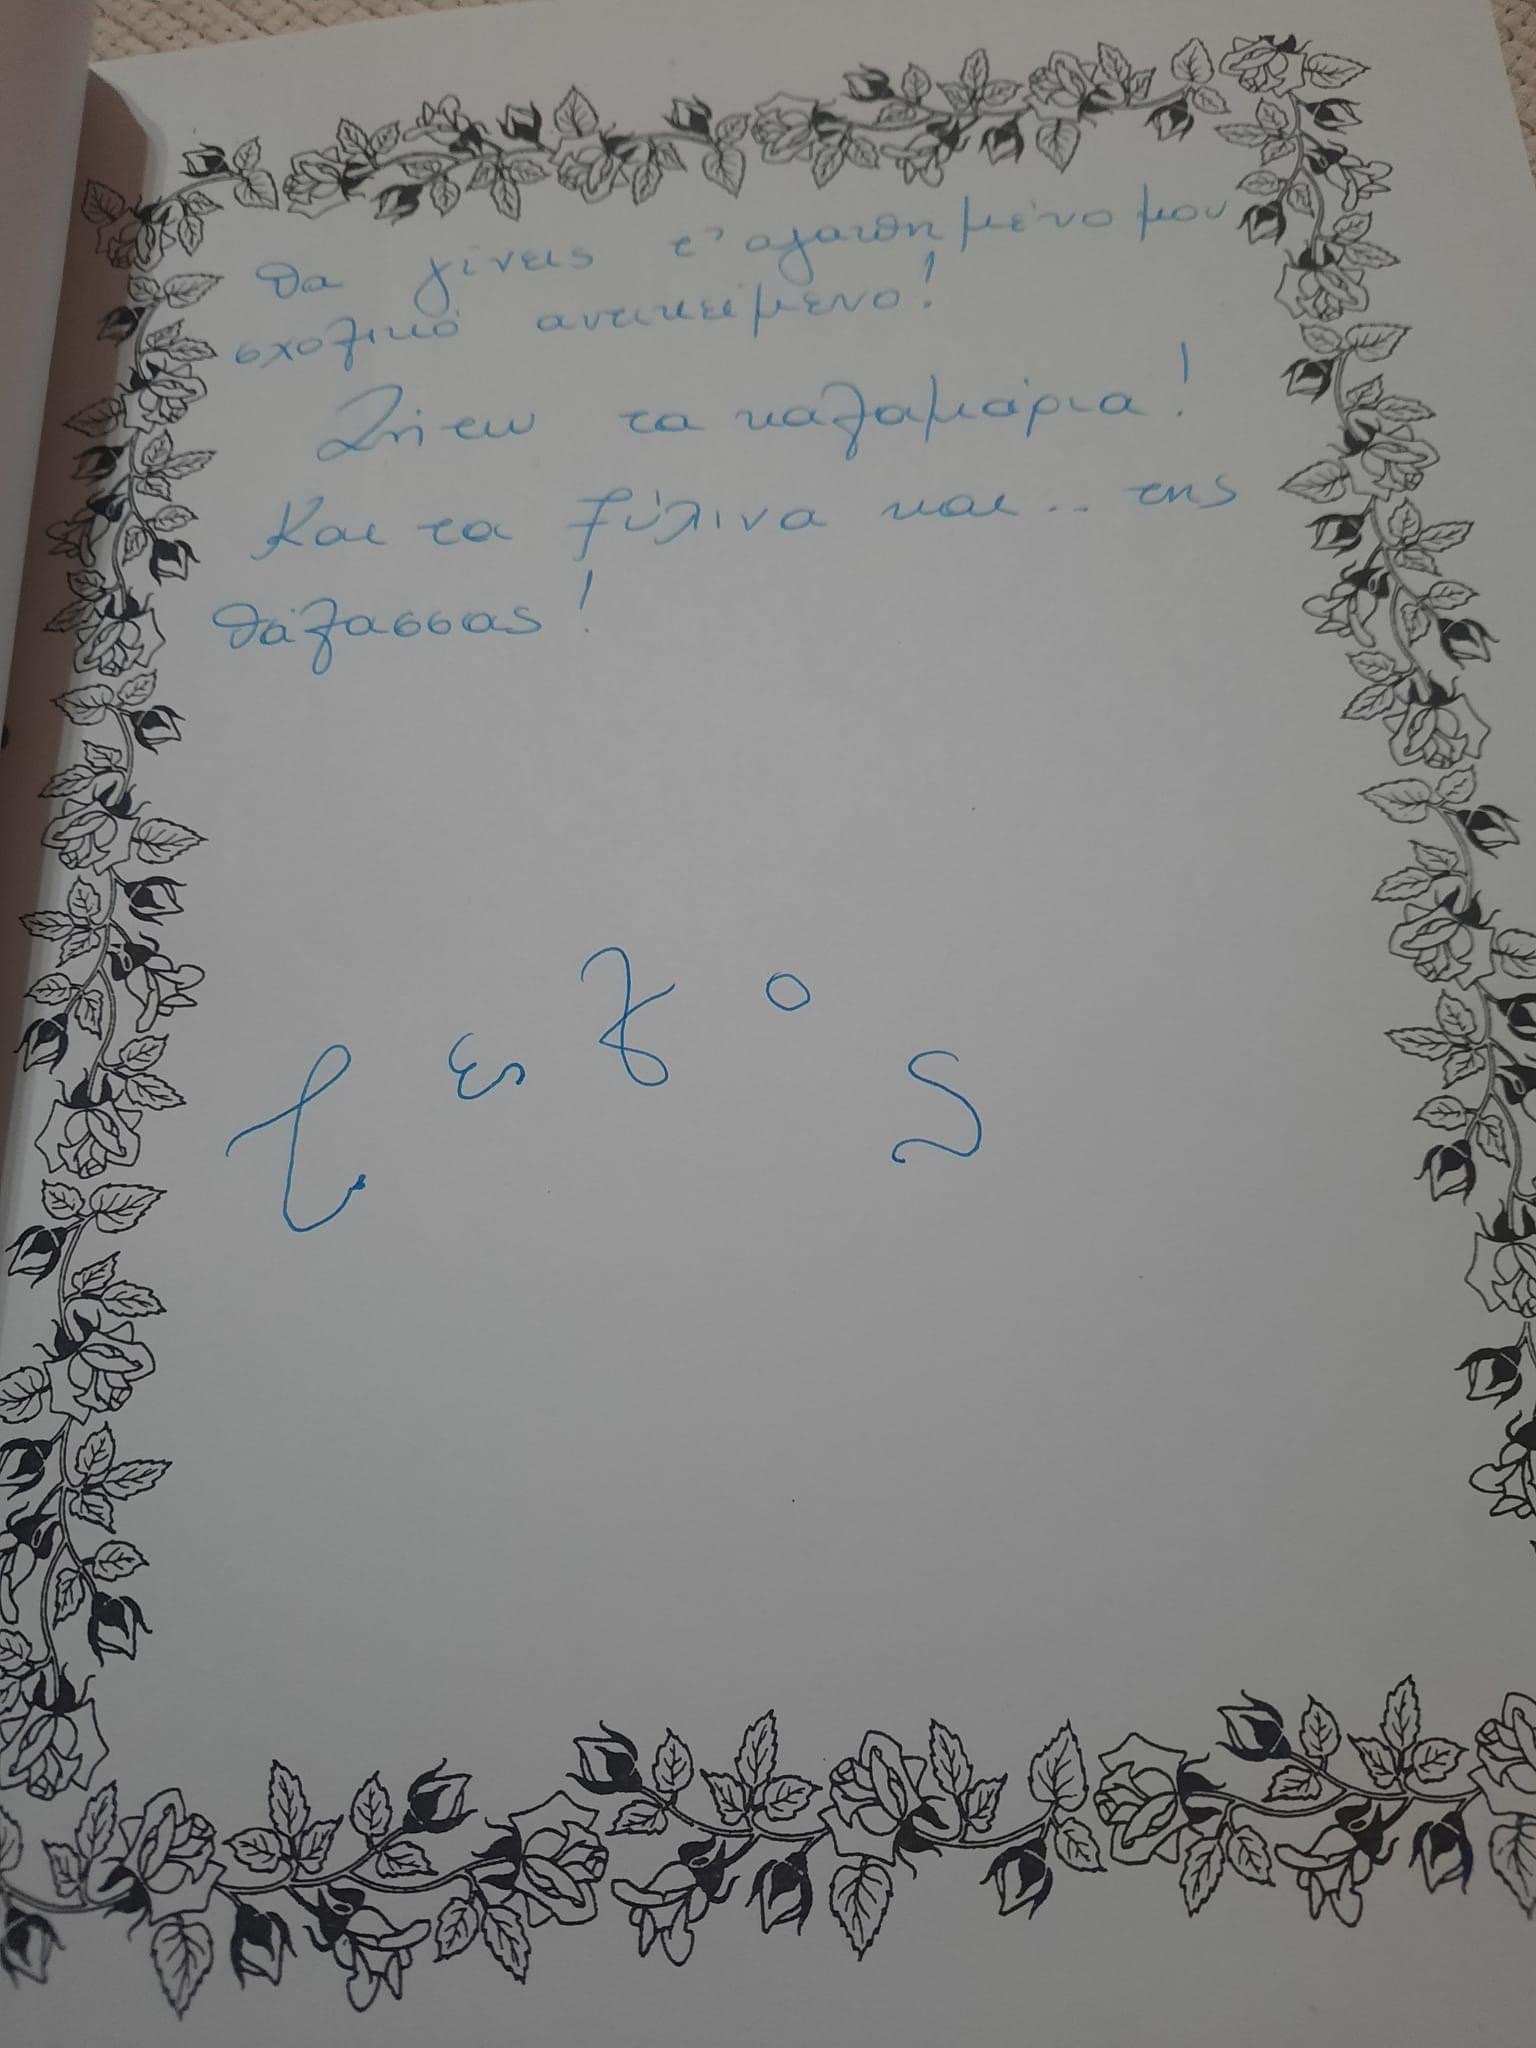 θα γίνεις τ' αγαπημένο μου
σχολικό αντικείμενο!
Ζήτω τα καλαμάρια!
Και τα ξύλινα και.. της
θάλασσας!
τελος